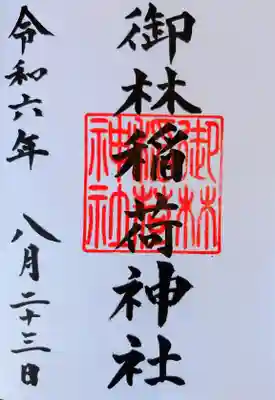 御林稲荷神社
御林稲荷神社
令和六年 八月二十三日